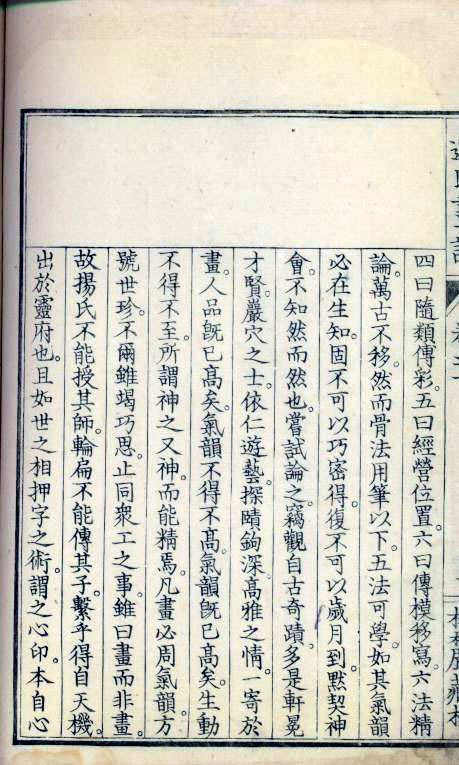 四曰隨類傳彩。五曰經營位置。六曰傳模移寫。六法精
論。萬古不移。然而骨法用筆以下。五法可學。如其氣韻。
必在生知。固不可以巧密得。復不可以歲月到。默契神
會。不知然而然也。嘗試論之。竊觀自古奇蹟。多是軒冕
才賢。巖穴之士。依仁遊藝。探賾鉤深。高雅之情。一寄於
畫。人品旣已高矣。氣韻不得不高。氣韻旣已高矣。生動
不得不至。所謂神之又神。而能精焉。凡畫必周氣韻。方
號世珍。不爾雖竭巧思。止同衆工之事。雖曰畫而非畫。
故揚氏不能授其師。輪扁不能傳其子。繫乎得自天機。
出於靈府也。且如世之相押字之術。謂之心印。本自心